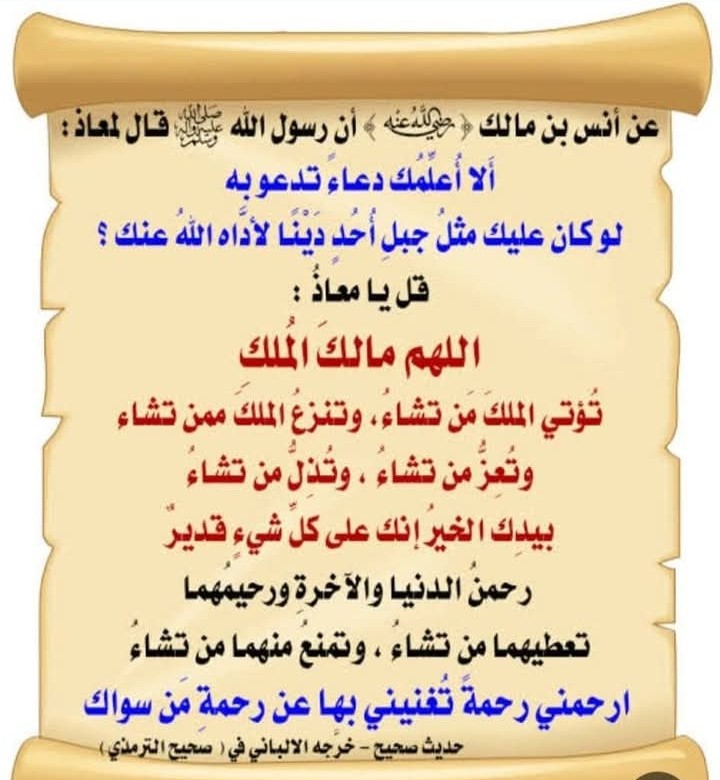 عن أنس بن مالك ﴿ رضي الله عنه ﴾ أن رسول الله ﷺ قال لمعاذ :
ألا أُعلِّمُك دعاءً تدعو به
لو كان عليك مثلُ جبلِ أُحُدٍ دَيْنًا لأدَّاه اللهُ عنك ؟
قل يا معاذُ :
اللهم مالكَ الُملك
تُؤتي الملكَ مَن تشاءُ، وتنزعُ الملكَ ممن تشاء
وتُعِزُّ من تشاءُ ، وتُذِلُّ من تشاءُ
بيدِك الخيرُ إنك على كلِّ شيءٍ قديرٌ
رحمنُ الدنيا والآخرةِ ورحيمُهما
تعطيهما من تشاءُ ، وتمنعُ منهما من تشاءُ
ارحمني رحمةً تُغنيني بها عن رحمةِ مَن سواك
حديث صحيح - خرَّجه الالباني في ( صحيح الترمذي )